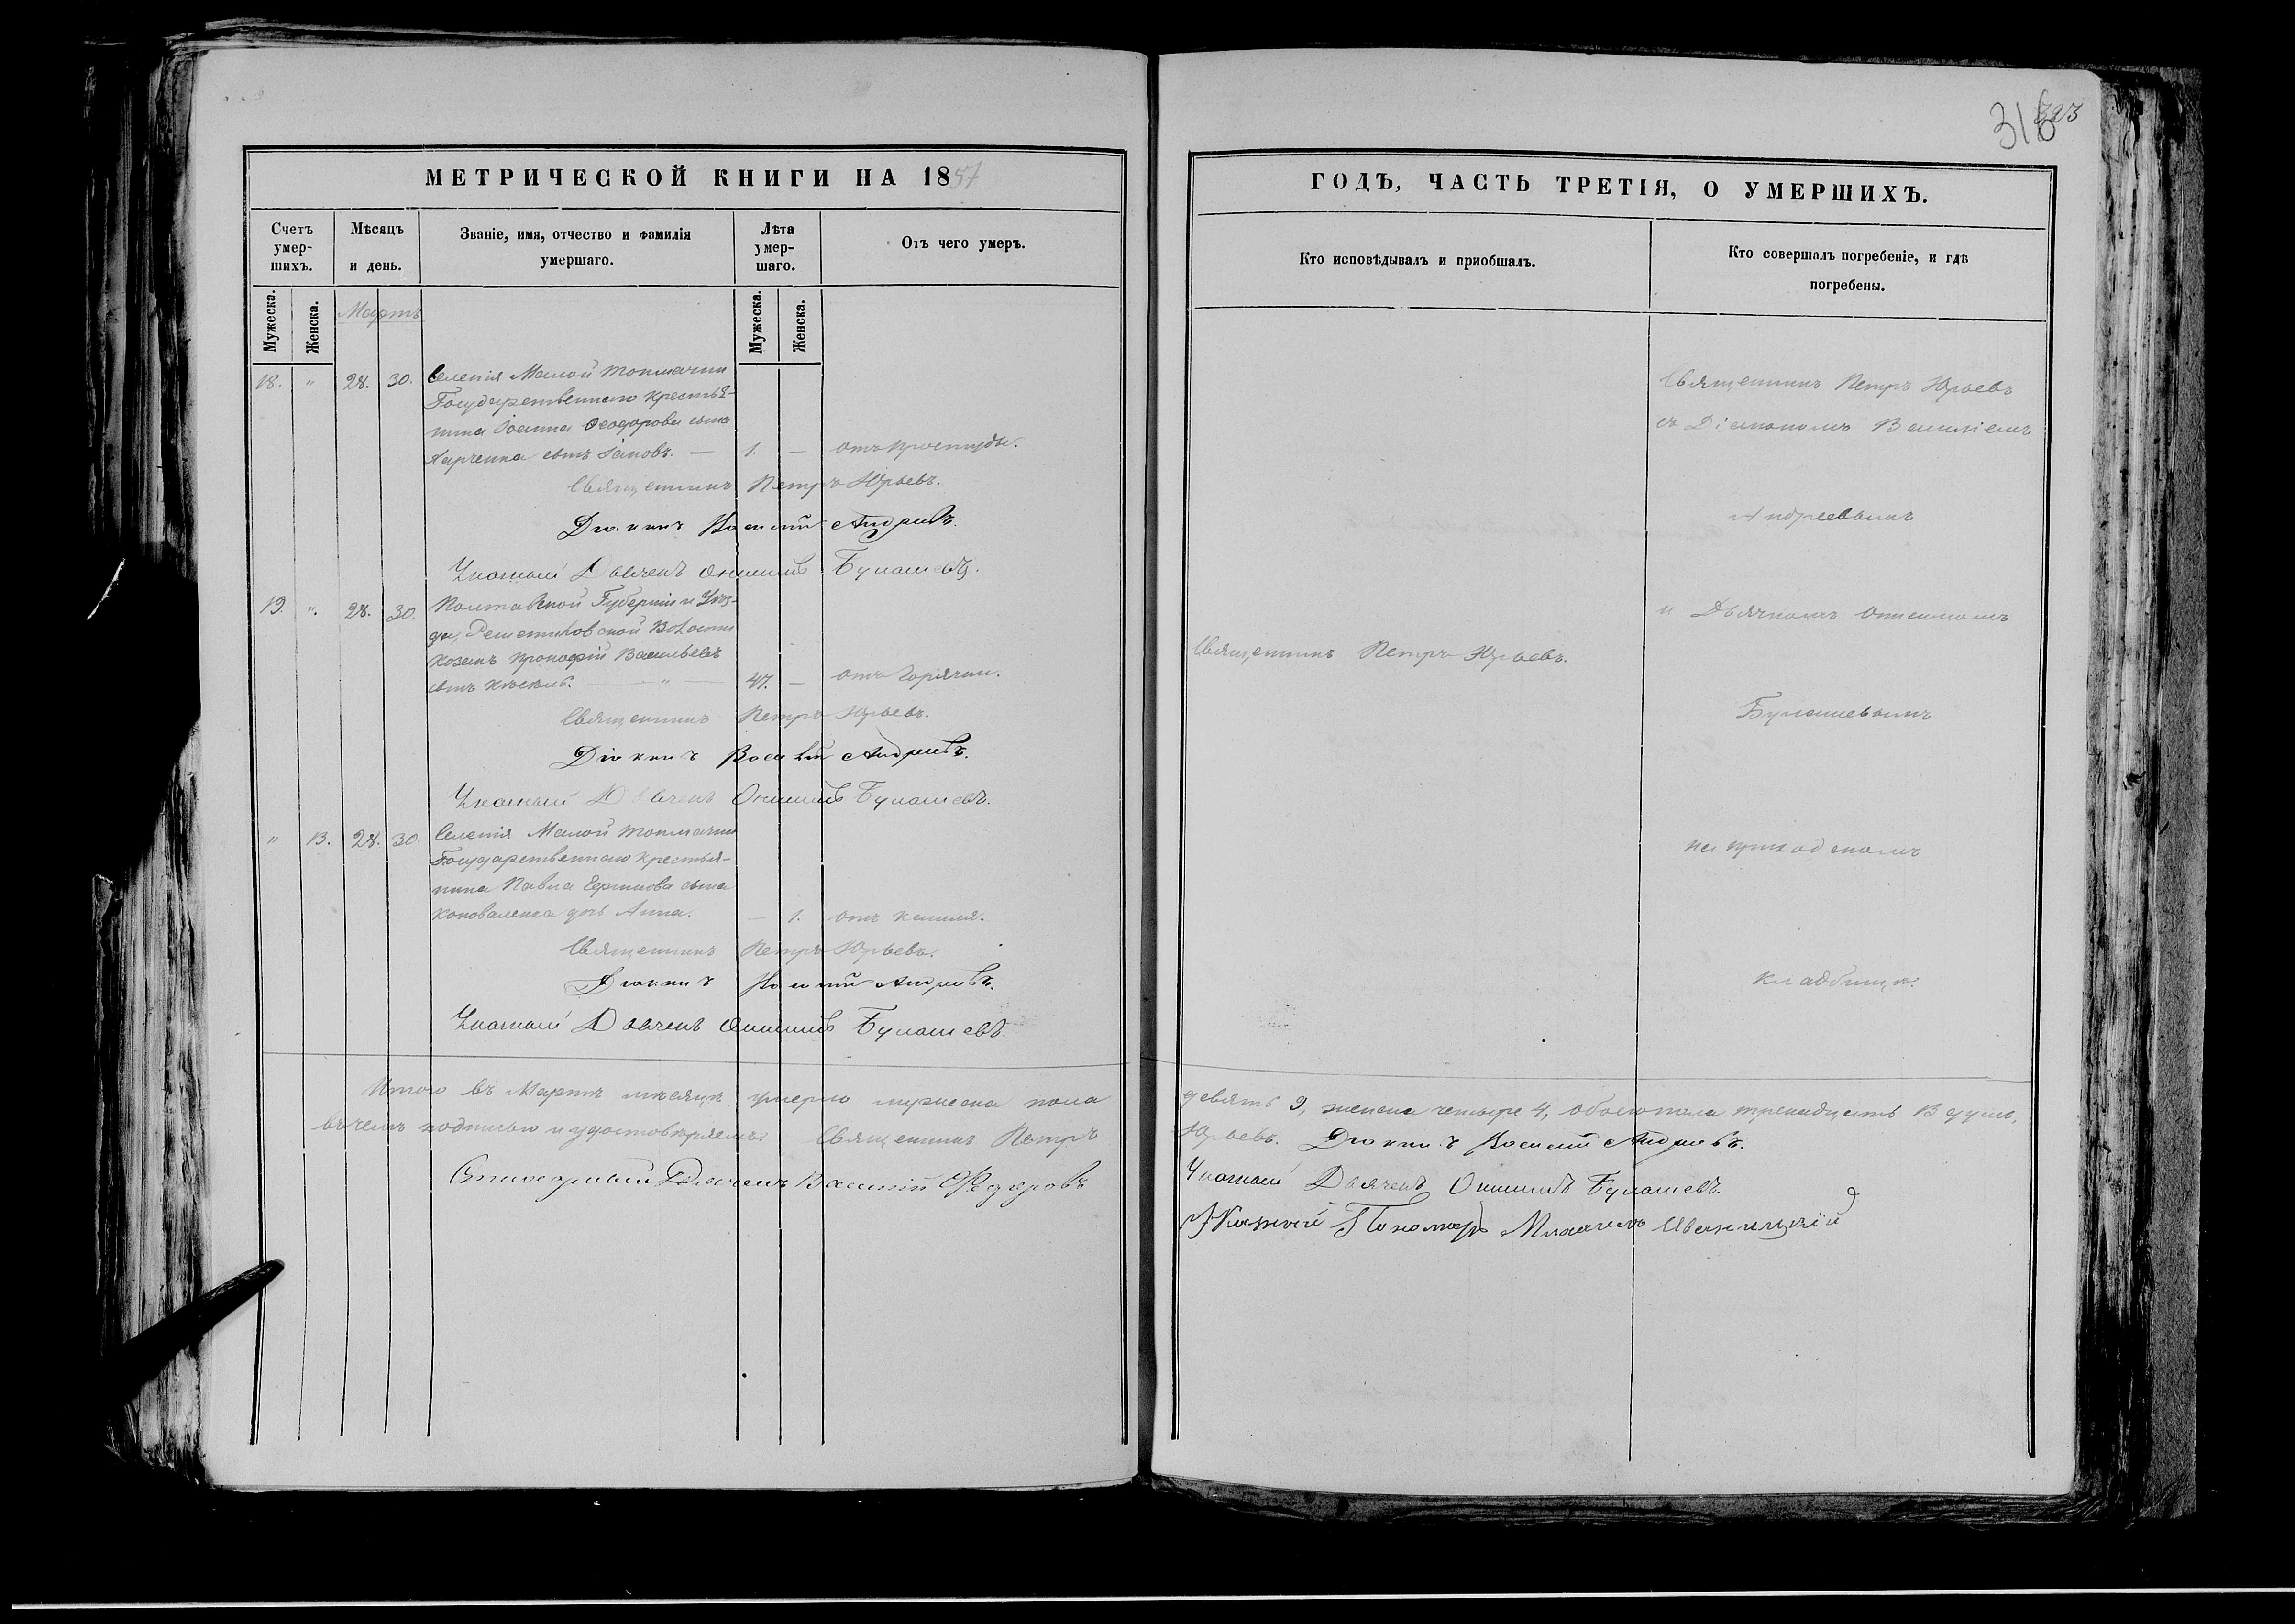 318
323
МЕТРИЧЕСКОЙ КНИГИ НА 1857
ГОДЪ, ЧАСТЬ ТРЕТІЯ, О УМЕРШИХЪ.
Счетъ умер-шихъ.
Мѣсяцъ и день.
Званіе, имя, отчество и фамилія умершаго.
Лѣта умер-шаго.
Отъ чего умеръ.
Мужеска.
Женска.
Мужеска.
Женска.
Мартъ
18. " 28. 30. Селенія Малой Токмачки
Государственнаго крестья-
нина Іоанна Ѳеодорова сына
Харченка сынъ Іаковъ. — 1. — отъ простуды.
Священникъ Петръ Юрьевъ.
Діаконъ Василій Андреевъ.
Указный Дьячекъ Булашевъ.
19. ". 28. 30. Полтавской Губерніи и Уѣз-
да, Решетиловской Волости
козакъ Прокофій Васильевъ
сынъ 47. — отъ горячки.
Священникъ Петръ Юрьевъ.
Діаконъ Василій Андреевъ.
Указный Дьячекъ Булашевъ.
" 13. 28. 30. Селенія Малой Токмачки
Государственнаго крестья-
нина Павла сына
Коноваленка дочь Анна. — 1. отъ кашля.
Священникъ Петръ Юрьевъ.
Діаконъ Василій Андреевъ.
Указный Дьячекъ Булашевъ.
Итого въ Мартѣ мѣсяцѣ умерло мужеска пола
въ чемъ подписью и удостовѣряемъ: Священникъ Петръ
Дьячекъ Василій Федоровъ
Кто исповѣдывалъ и приобщалъ.
Кто совершалъ погребеніе, и гдѣ погребены.
Священникъ Петръ Юрьевъ
съ Діакономъ Василіемъ
Андреевымъ
и Дьячкомъ
Священникъ Петръ Юрьевъ.
Булашевымъ
на приходскомъ
кладбищѣ.
девять 9, женска четыре 4, обоего пола тринадцать 13 душъ,
Юрьевъ. Діаконъ Василій Андреевъ.
Указный Дьячекъ Булашевъ.
Указный Пономарь Михаилъ